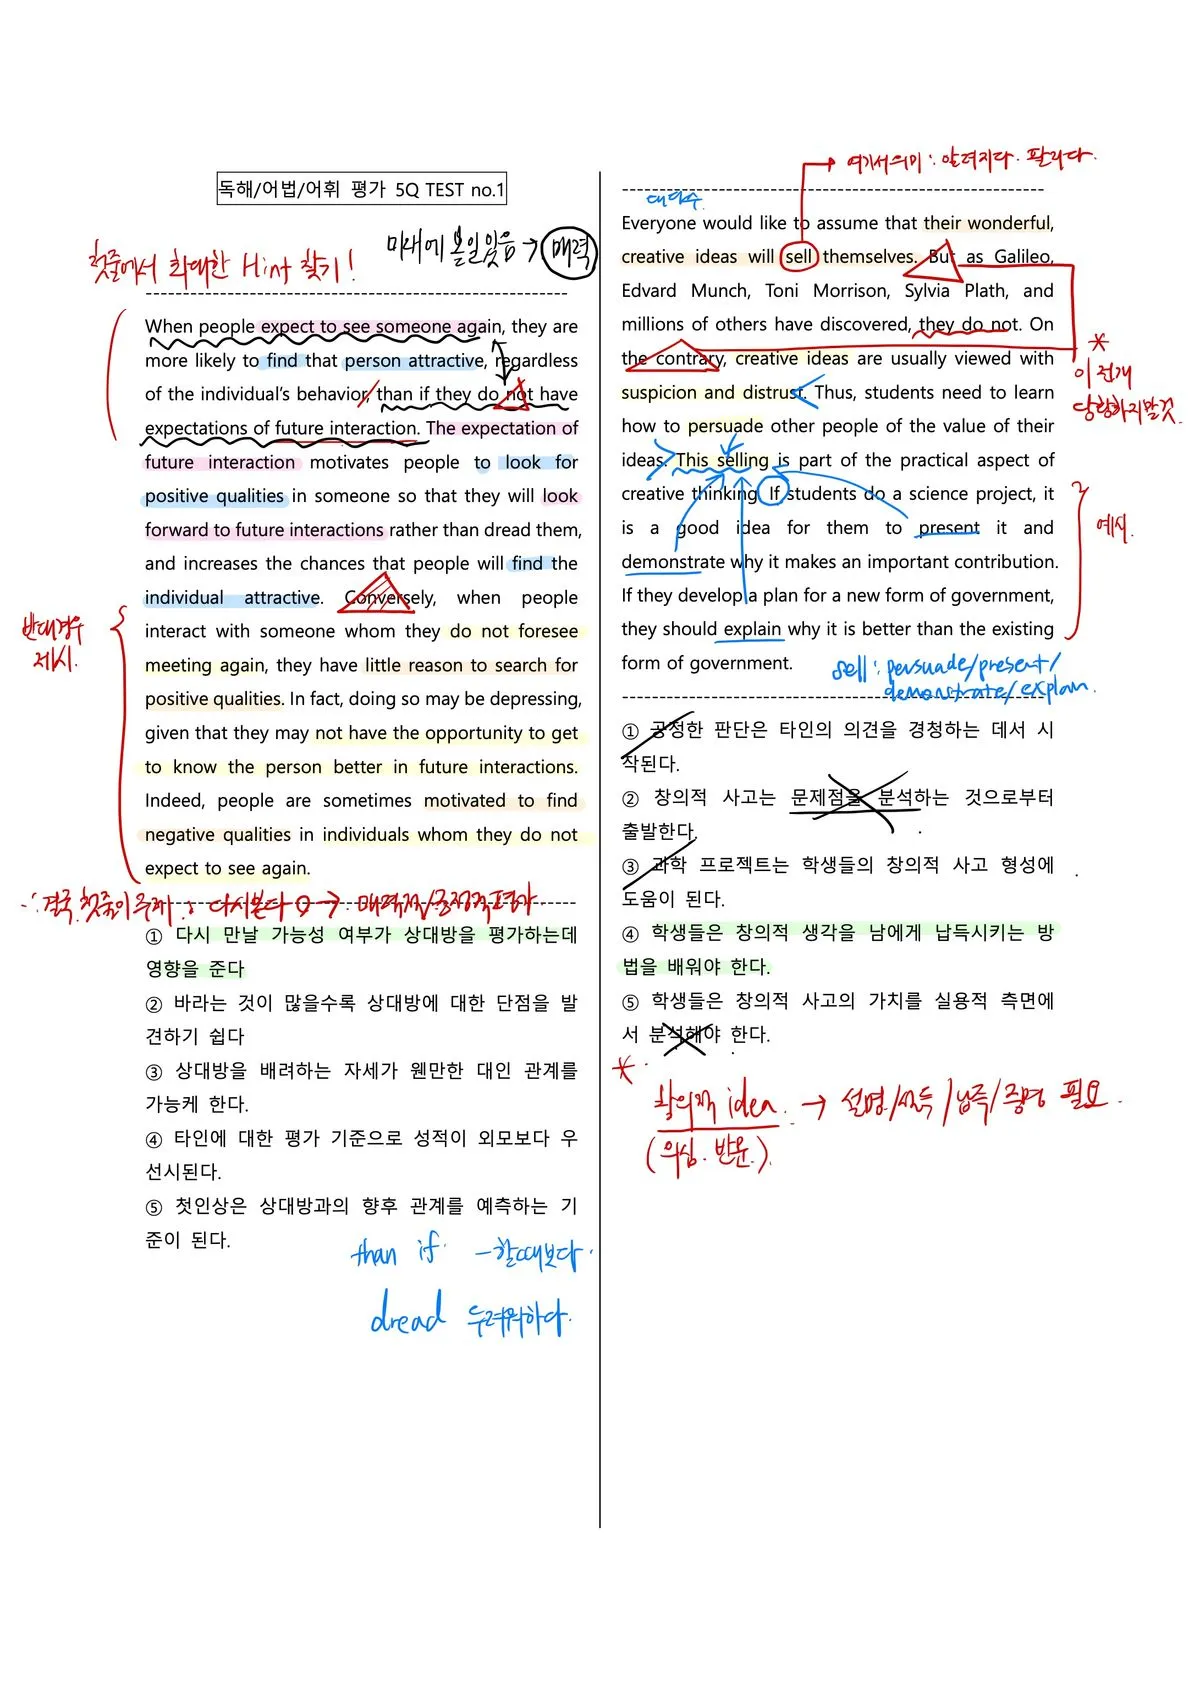 독해/어법/어휘 평가 5Q TEST no.1
미래에 볼일있음 → 매력
첫줄에서 최대한 Hint 찾기!
When people expect to see someone again, they are
more likely to find that person attractive, regardless
of the individual's behavior, than if they do not have
expectations of future interaction. The expectation of
future interaction motivates people to look for
positive qualities in someone so that they will look
forward to future interactions rather than dread them,
and increases the chances that people will find the
individual attractive. Conversely, when people
interact with someone whom they do not foresee
meeting again, they have little reason to search for
positive qualities. In fact, doing so may be depressing,
given that they may not have the opportunity to get
to know the person better in future interactions.
Indeed, people are sometimes motivated to find
negative qualities in individuals whom they do not
expect to see again.
반대경우
제시.
∴ 결국 첫줄이 주제 : 다시본다 O → 매력적/긍정적 평가
① 다시 만날 가능성 여부가 상대방을 평가하는데
영향을 준다
② 바라는 것이 많을수록 상대방에 대한 단점을 발
견하기 쉽다
③ 상대방을 배려하는 자세가 웬만한 대인 관계를
가능케 한다.
④ 타인에 대한 평가 기준으로 성적이 외모보다 우
선시된다.
⑤ 첫인상은 상대방과의 향후 관계를 예측하는 기
준이 된다.
than if -할때보다.
dread 두려워하다.
→ 여기서의미 : 알려지다. 팔리다.
대다수
Everyone would like to assume that their wonderful,
creative ideas will sell themselves. But as Galileo,
Edvard Munch, Toni Morrison, Sylvia Plath, and
millions of others have discovered, they do not. On
the contrary, creative ideas are usually viewed with
suspicion and distrust. Thus, students need to learn
how to persuade other people of the value of their
ideas. This selling is part of the practical aspect of
creative thinking. If students do a science project, it
is a good idea for them to present it and
demonstrate why it makes an important contribution.
If they develop a plan for a new form of government,
they should explain why it is better than the existing
form of government.
이 전개
당황하지말것.
예시.
sell : persuade/present/
demonstrate/explain.
① 공정한 판단은 타인의 의견을 경청하는 데서 시
작된다.
② 창의적 사고는 문제점을 분석하는 것으로부터
출발한다.
③ 과학 프로젝트는 학생들의 창의적 사고 형성에
도움이 된다.
④ 학생들은 창의적 생각을 남에게 납득시키는 방
법을 배워야 한다.
⑤ 학생들은 창의적 사고의 가치를 실용적 측면에
서 분석해야 한다.
창의적 idea. → 설명/설득/납득/증명 필요.
(의심. 반문.)